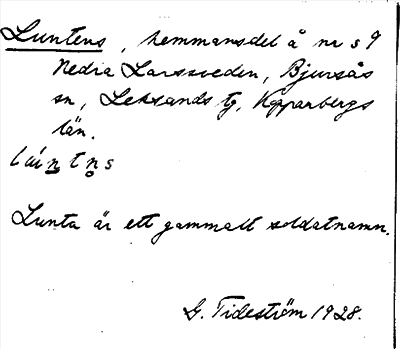 Luntens, hemmansdel å nr s 9
Nedra Larssveden, Bjursås
sn, Leksands tg, Kopparbergs
län.
Lunta är ett gammalt soldatnamn.
G. Tideström 1928.